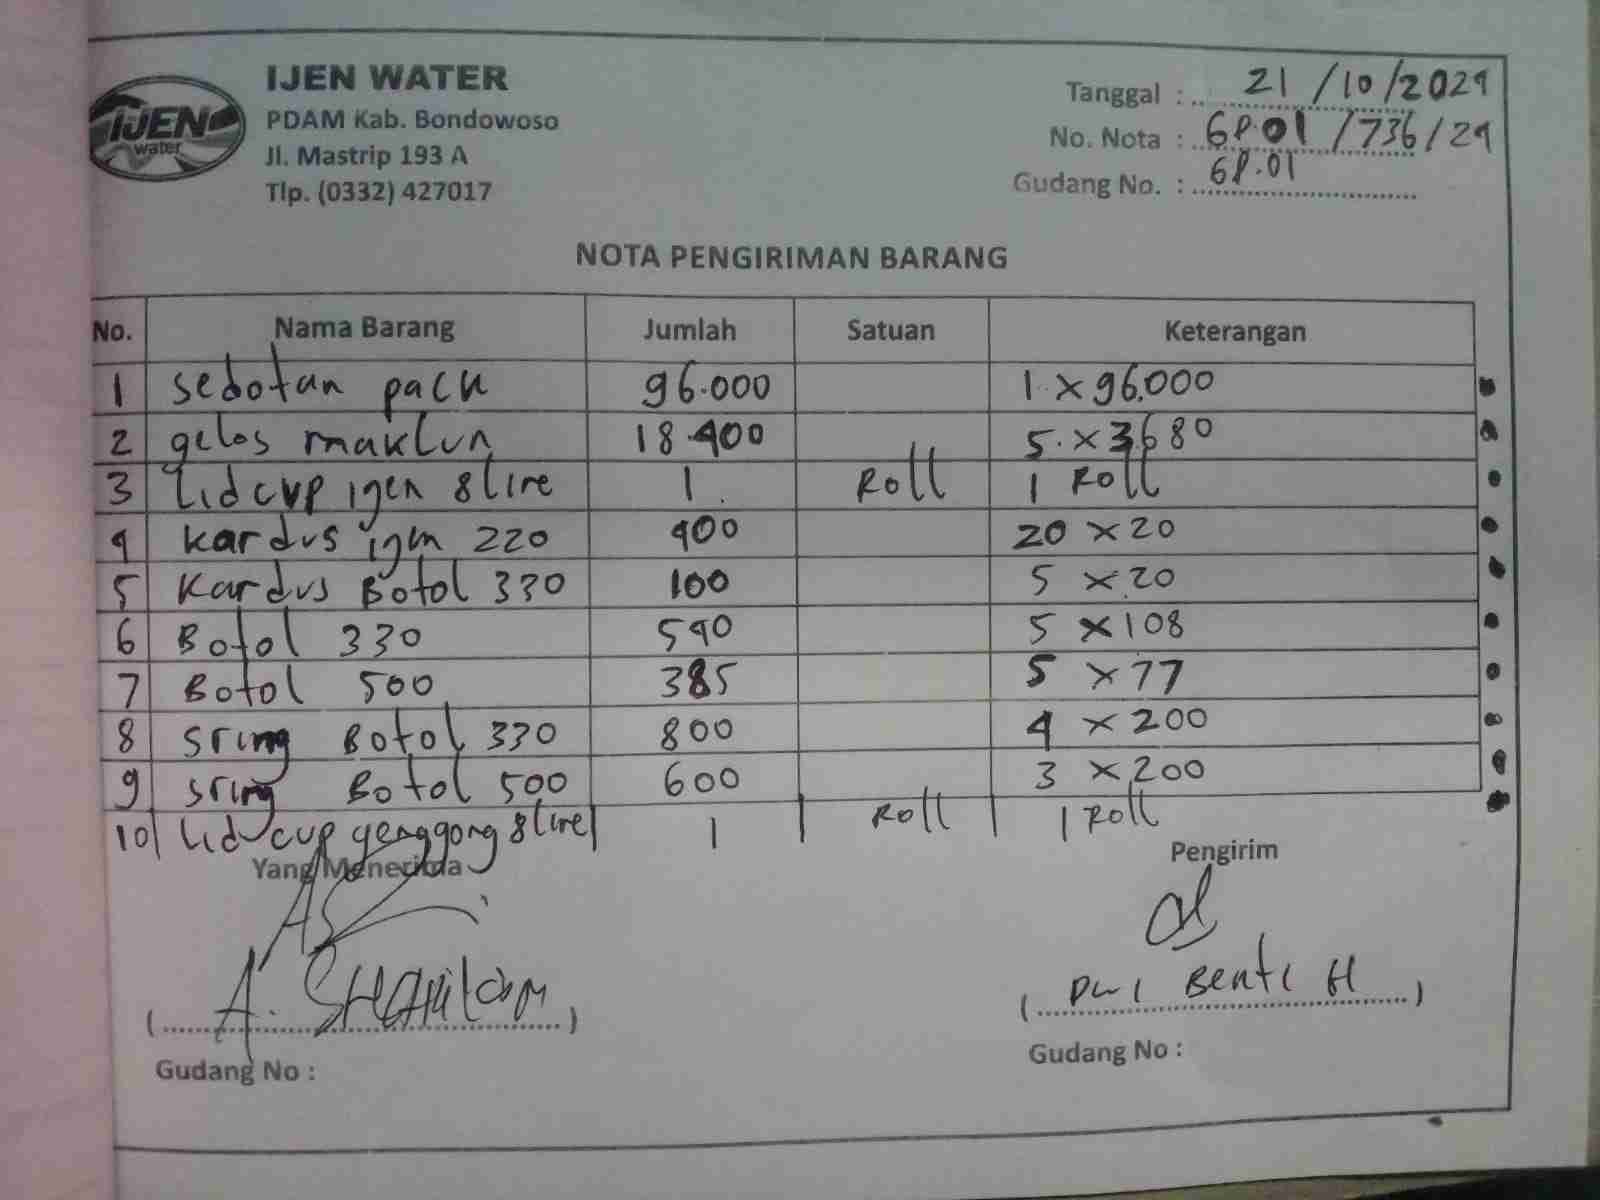 IJEN water
IJEN WATER
PDAM Kab. Bondowoso
Jl. Mastrip 193 A
Tlp. (0332) 427017
Tanggal : 21/10/2024
No. Nota : 68.01/736/24
Gudang No. : 68.01
NOTA PENGIRIMAN BARANG
No. Nama Barang Jumlah Satuan Keterangan
1 sedotan pack 96.000 1 x 96.000
2 gelas maklun 18.400 5 x 3680
3 Lid cup ijen 8 line 1 Roll 1 Roll
4 kardus ijen 220 400 20 x 20
5 Kardus Botol 330 100 5 x 20
6 Botol 330 540 5 x 108
7 Botol 500 385 5 x 77
8 sring Botol 330 800 4 x 200
9 sring Botol 500 600 3 x 200
10 Lid cup genggong 8 line 1 Roll 1 Roll
Yang Menerima Pengirim
(A.) (Dwi Benti H)
Gudang No : Gudang No :